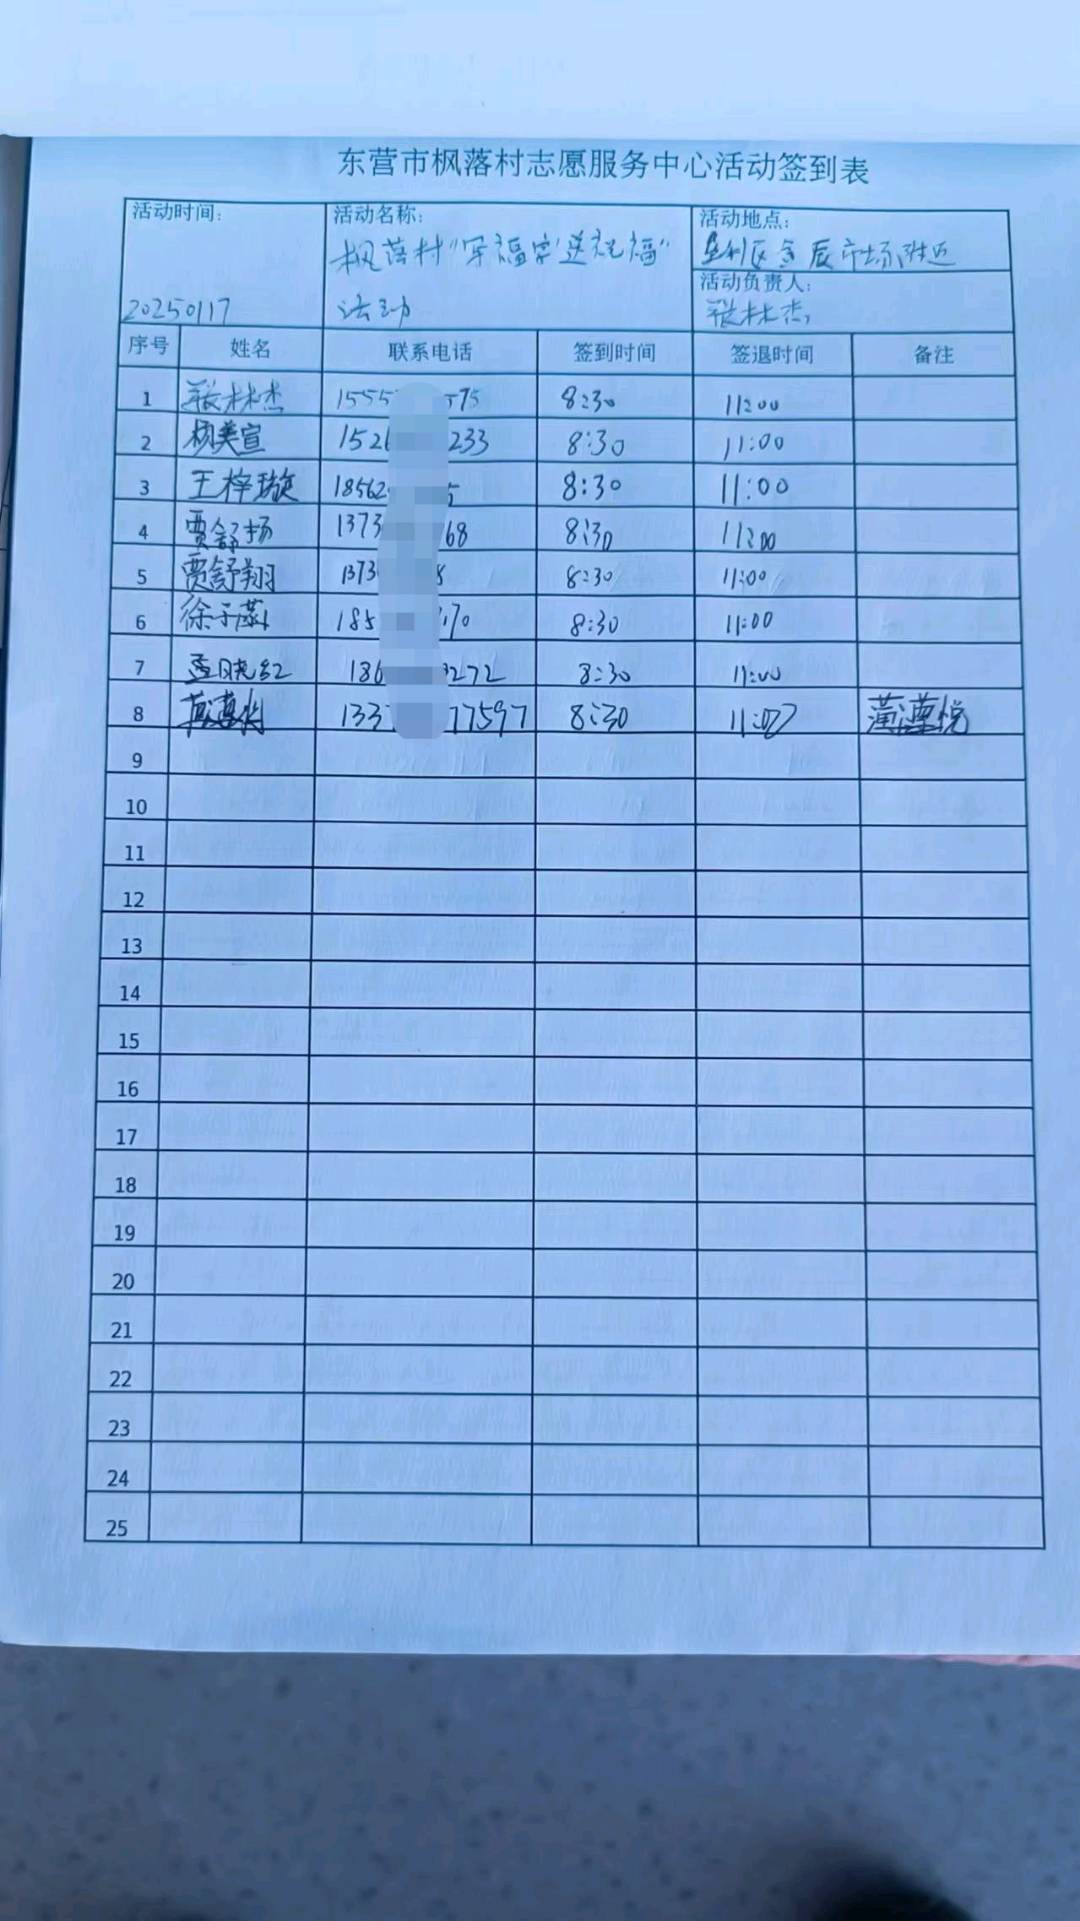 东营市枫落村志愿服务中心活动签到表
活动时间: 活动名称: 活动地点:
枫落村“写福字送祝福” 垦利区金辰市场附近
活动负责人:
20250117 活动 张林杰
序号 姓名 联系电话 签到时间 签退时间 备注
1 张林杰 1555 575 8:30 11:00
2 杨美宣 152 233 8:30 11:00
3 王梓璇 1856 5 8:30 11:00
4 贾舒扬 1373 68 8:30 11:00
5 贾舒翔 1373 8 8:30 11:00
6 徐子涵 185 70 8:30 11:00
7 孟晓红 186 3272 8:30 11:00
8 133 77597 8:30 11:00
9
10
11
12
13
14
15
16
17
18
19
20
21
22
23
24
25